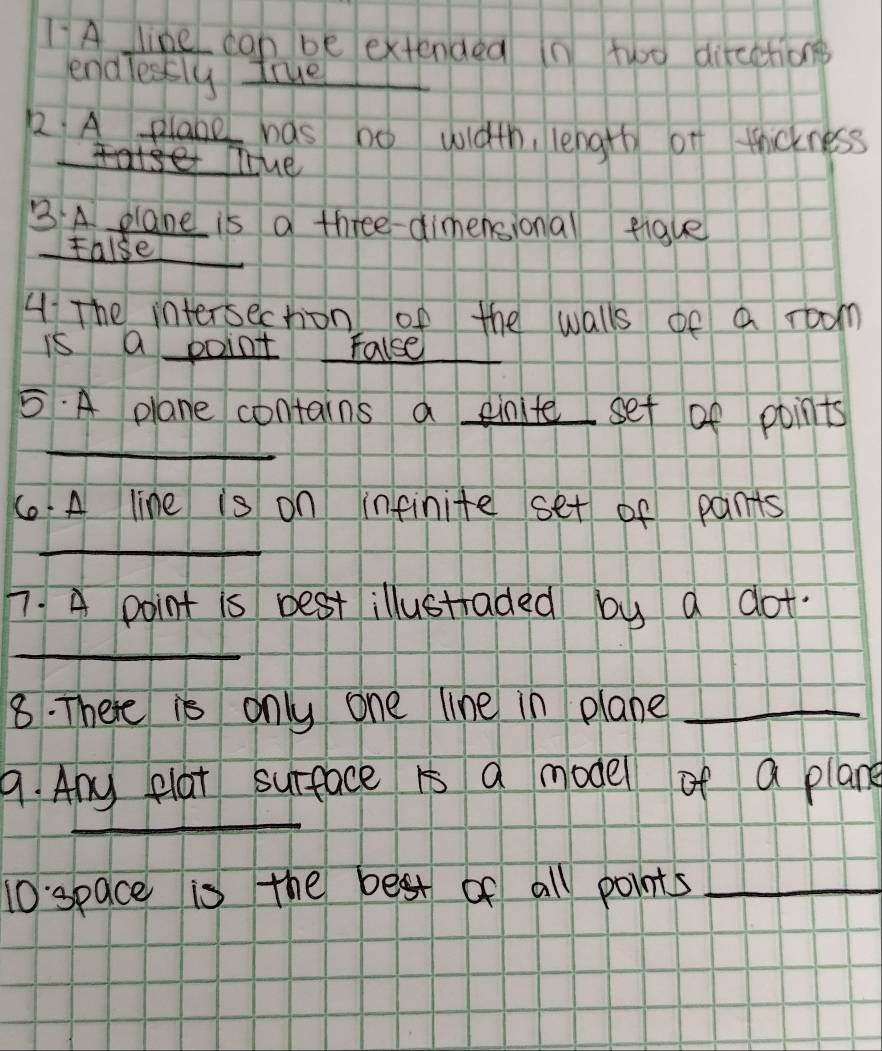 1. A line can be extended in two directions
endlessly True
2. A plane has no width, length or thickness
False True
3. A plane is a three-dimensional figue
False
4. The intersection of the walls of a room
is a point False
5. A plane contains a finite set of points
6. A line is on infinite set of paints
7. A point is best illustraded by a dot.
8. There is only one line in plane
9. Any flat surface is a model of a plane
10. space is the best of all points